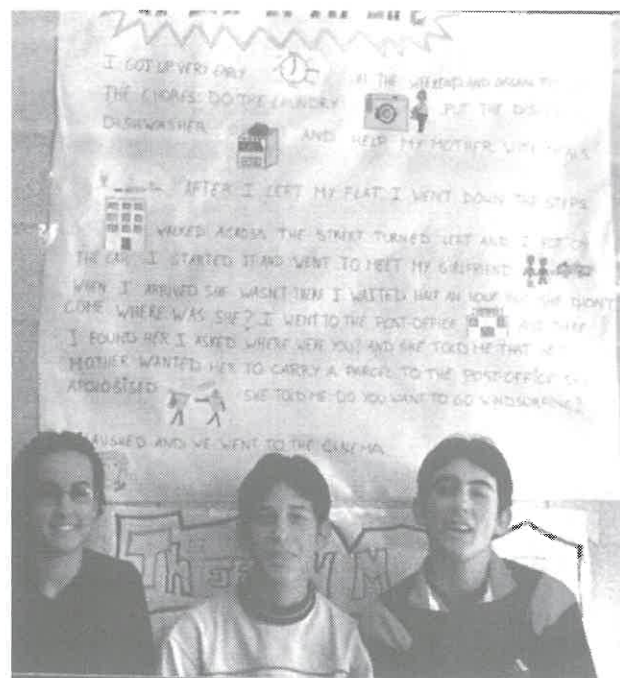 I GOT UP VERY EARLY IN THE WEEKEND AND
THE CHORES. DO THE LAUNDRY PUT THE
DISHWASHER AND HELP MY MOTHER WITH
AFTER I LEFT MY FLAT I WENT DOWN THE STEPS
WALKED ACROSS THE STREET TURNED LEFT AND I
THE CAR. I STARTED IT AND WENT TO MEET MY GIRLFRIEND
WHEN I ARRIVED SHE WASN'T THERE I WAITED HALF AN HOUR SHE DIDN'T
COME WHERE WAS SHE? I WENT TO THE POST-OFFICE AND THERE
I FOUND HER I ASKED WHERE WERE YOU? AND SHE TOLD ME THAT
MOTHER WANTED HER TO CARRY A PARCEL TO THE POST-OFFICE
APOLOGISED SHE TOLD ME DO YOU WANT TO GO WINDSURFING?
LAUGHED AND WE WENT TO THE CINEMA